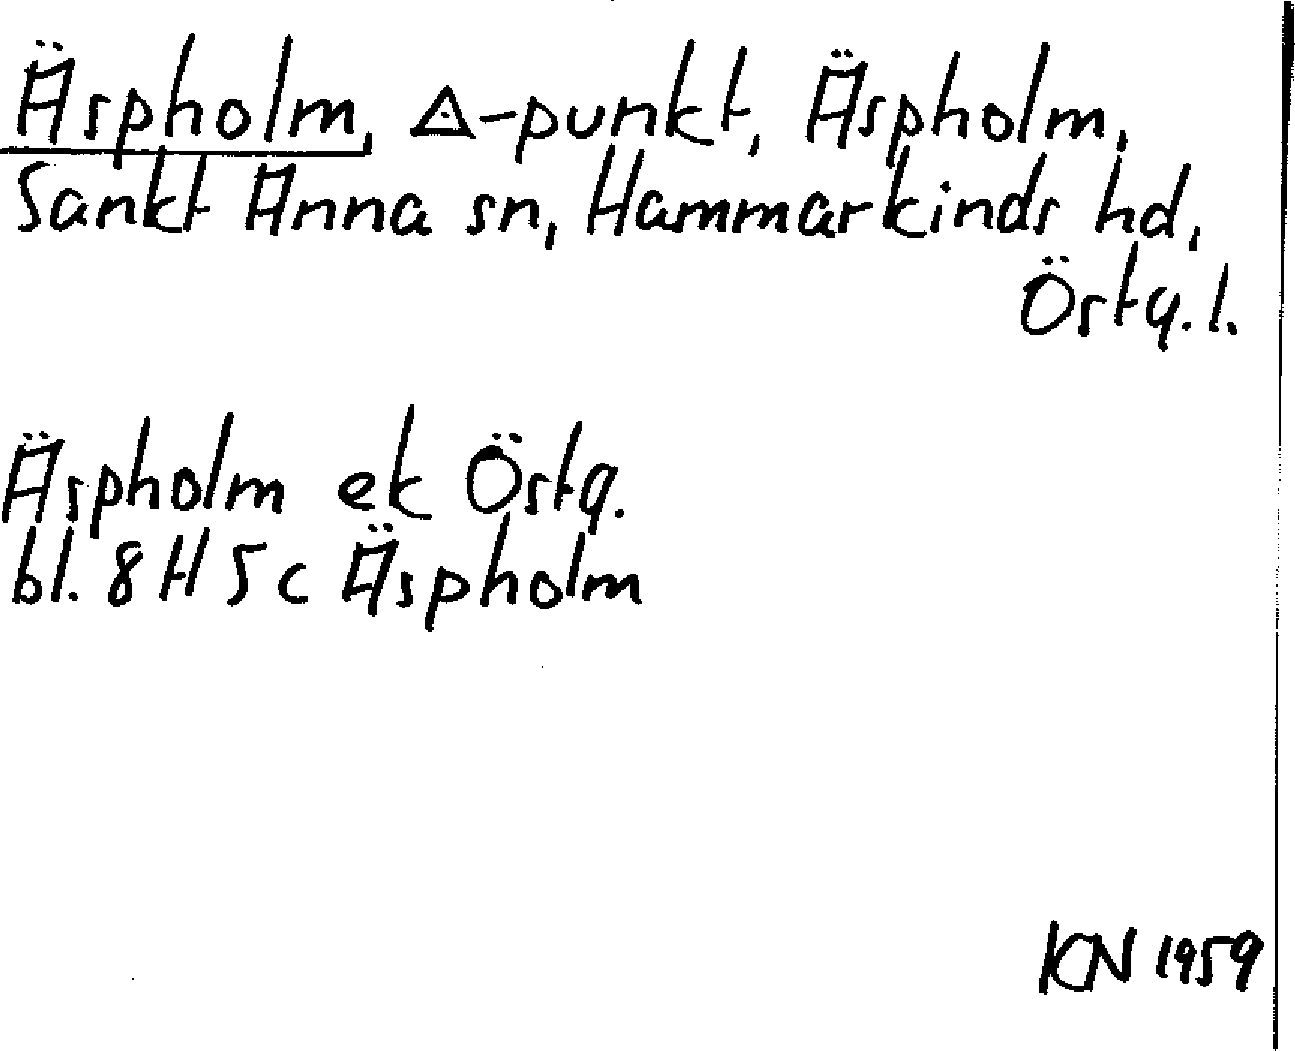 Äspholm, ◬-punkt, Äspholm,
Sankt Anna sn, Hammarkinds hd,
Östg. l.
Äspholm ek Östg.
bl. 8 H 5 c Äspholm
KN 1959